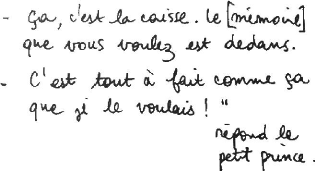 - Ça, c'est la caisse. Le [mémoire]
que vous voulez est dedans.
- C'est tout à fait comme ça
que je le voulais ! "
répond le
petit prince.